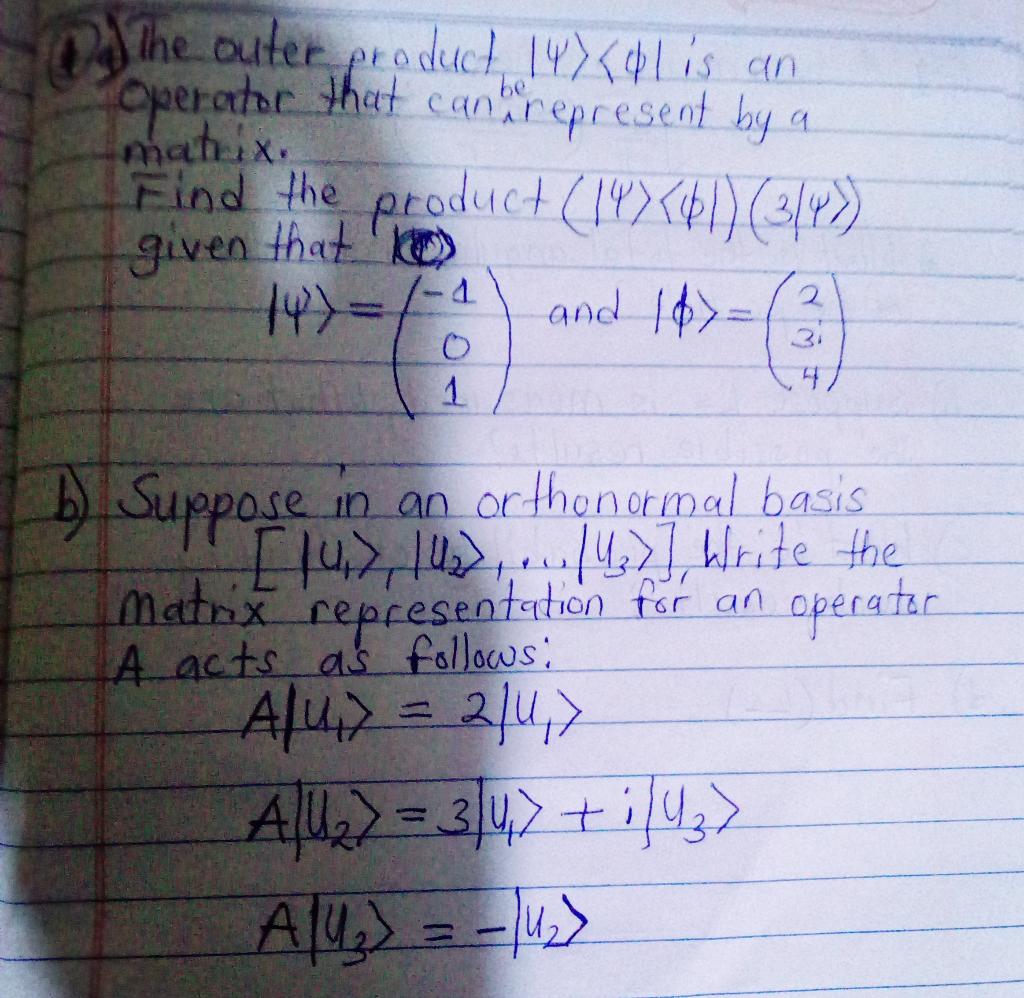 1)a) The outer product |ψ><φ| is an
operator that can be represent by a
matrix.
Find the product (|ψ><φ|)(3|ψ>)
given that
|ψ> = (-1 0 1) and |φ> = (2 3i 4)
b) Suppose in an orthonormal basis
[|u₁>, |u₂>, ... |u₃>], Write the
matrix representation for an operator
A acts as follows:
A|u₁> = 2|u₁>
A|u₂> = 3|u₁> + i|u₃>
A|u₃> = -|u₂>